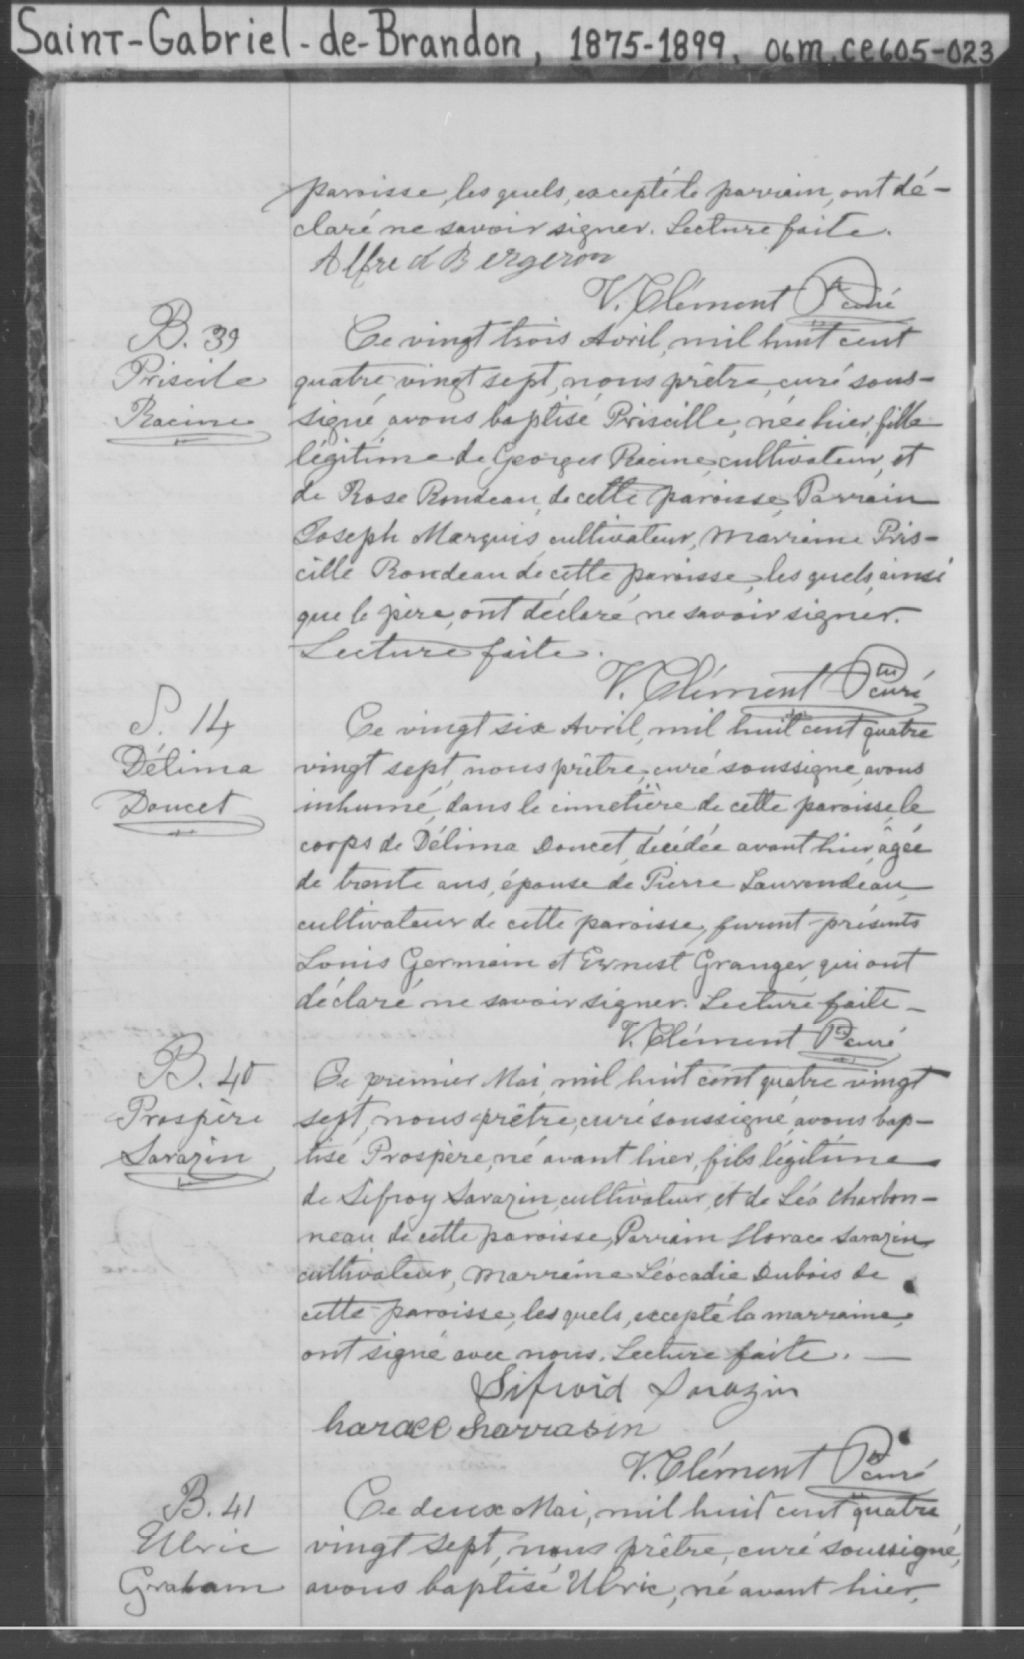 Saint-Gabriel-de-Brandon, 1875-1899. 06m.ce605-023
paroisse, les quels, excepté le parrain, ont dé-
claré ne savoir signer. Lecture faite.
Alfred Bergeron
V. Clément Ptre curé
B. 39
Priscile
Racine
Ce vingt trois Avril, mil huit cent
quatre vingt sept, nous prêtre, curé sous-
signé, avons baptisé Priscille, née hier, fille
légitime de Georges Racine, cultivateur, et
de Rose Rondeau, de cette paroisse, Parrain
Joseph Marquis, cultivateur, Marraine Pris-
cille Rondeau de cette paroisse, les quels, ainsi
que le père, ont déclaré ne savoir signer.
Lecture faite.
V. Clément Ptre curé
S. 14
Délima
Doucet
Ce vingt six Avril, mil huit cent quatre
vingt sept, nous prêtre, curé soussigné, avons
inhumé, dans le cimetière de cette paroisse, le
corps de Délima Doucet, décédée avant hier, âgée
de trente ans, épouse de Pierre Laurendeau,
cultivateur de cette paroisse, furent présents
Louis Germain et Ernest Granger, qui ont
déclaré ne savoir signer. Lecture faite -
V. Clément Ptre curé
B. 40
Prospère
Sarazin
Ce premier Mai, mil huit cent quatre vingt
sept, nous prêtre, curé soussigné, avons bap-
tisé Prospère, né avant hier, fils légitime
de Sifroy Sarazin, cultivateur, et de Léa Charbon-
neau de cette paroisse, Parrain Horace Sarazin
cultivateur, Marraine Léocadie Dubois de
cette paroisse, les quels, excepté la marraine,
ont signé avec nous. Lecture faite. -
Sifroid Sarazin
horace Sarrasin
V. Clément Ptre curé
B. 41
Ulric
Graham
Ce deux Mai, mil huit cent quatre
vingt sept, nous prêtre, curé soussigné,
avons baptisé Ulric, né avant hier,